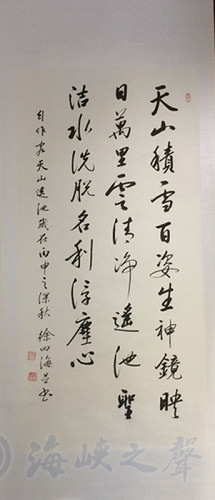 天山積雪百姿生神鏡映
日萬里雲清淨遙池聖
洁水洗脫名利浮塵心
自作客天山遙池歲在丙申之深秋 徐四海並書
海峡之聲